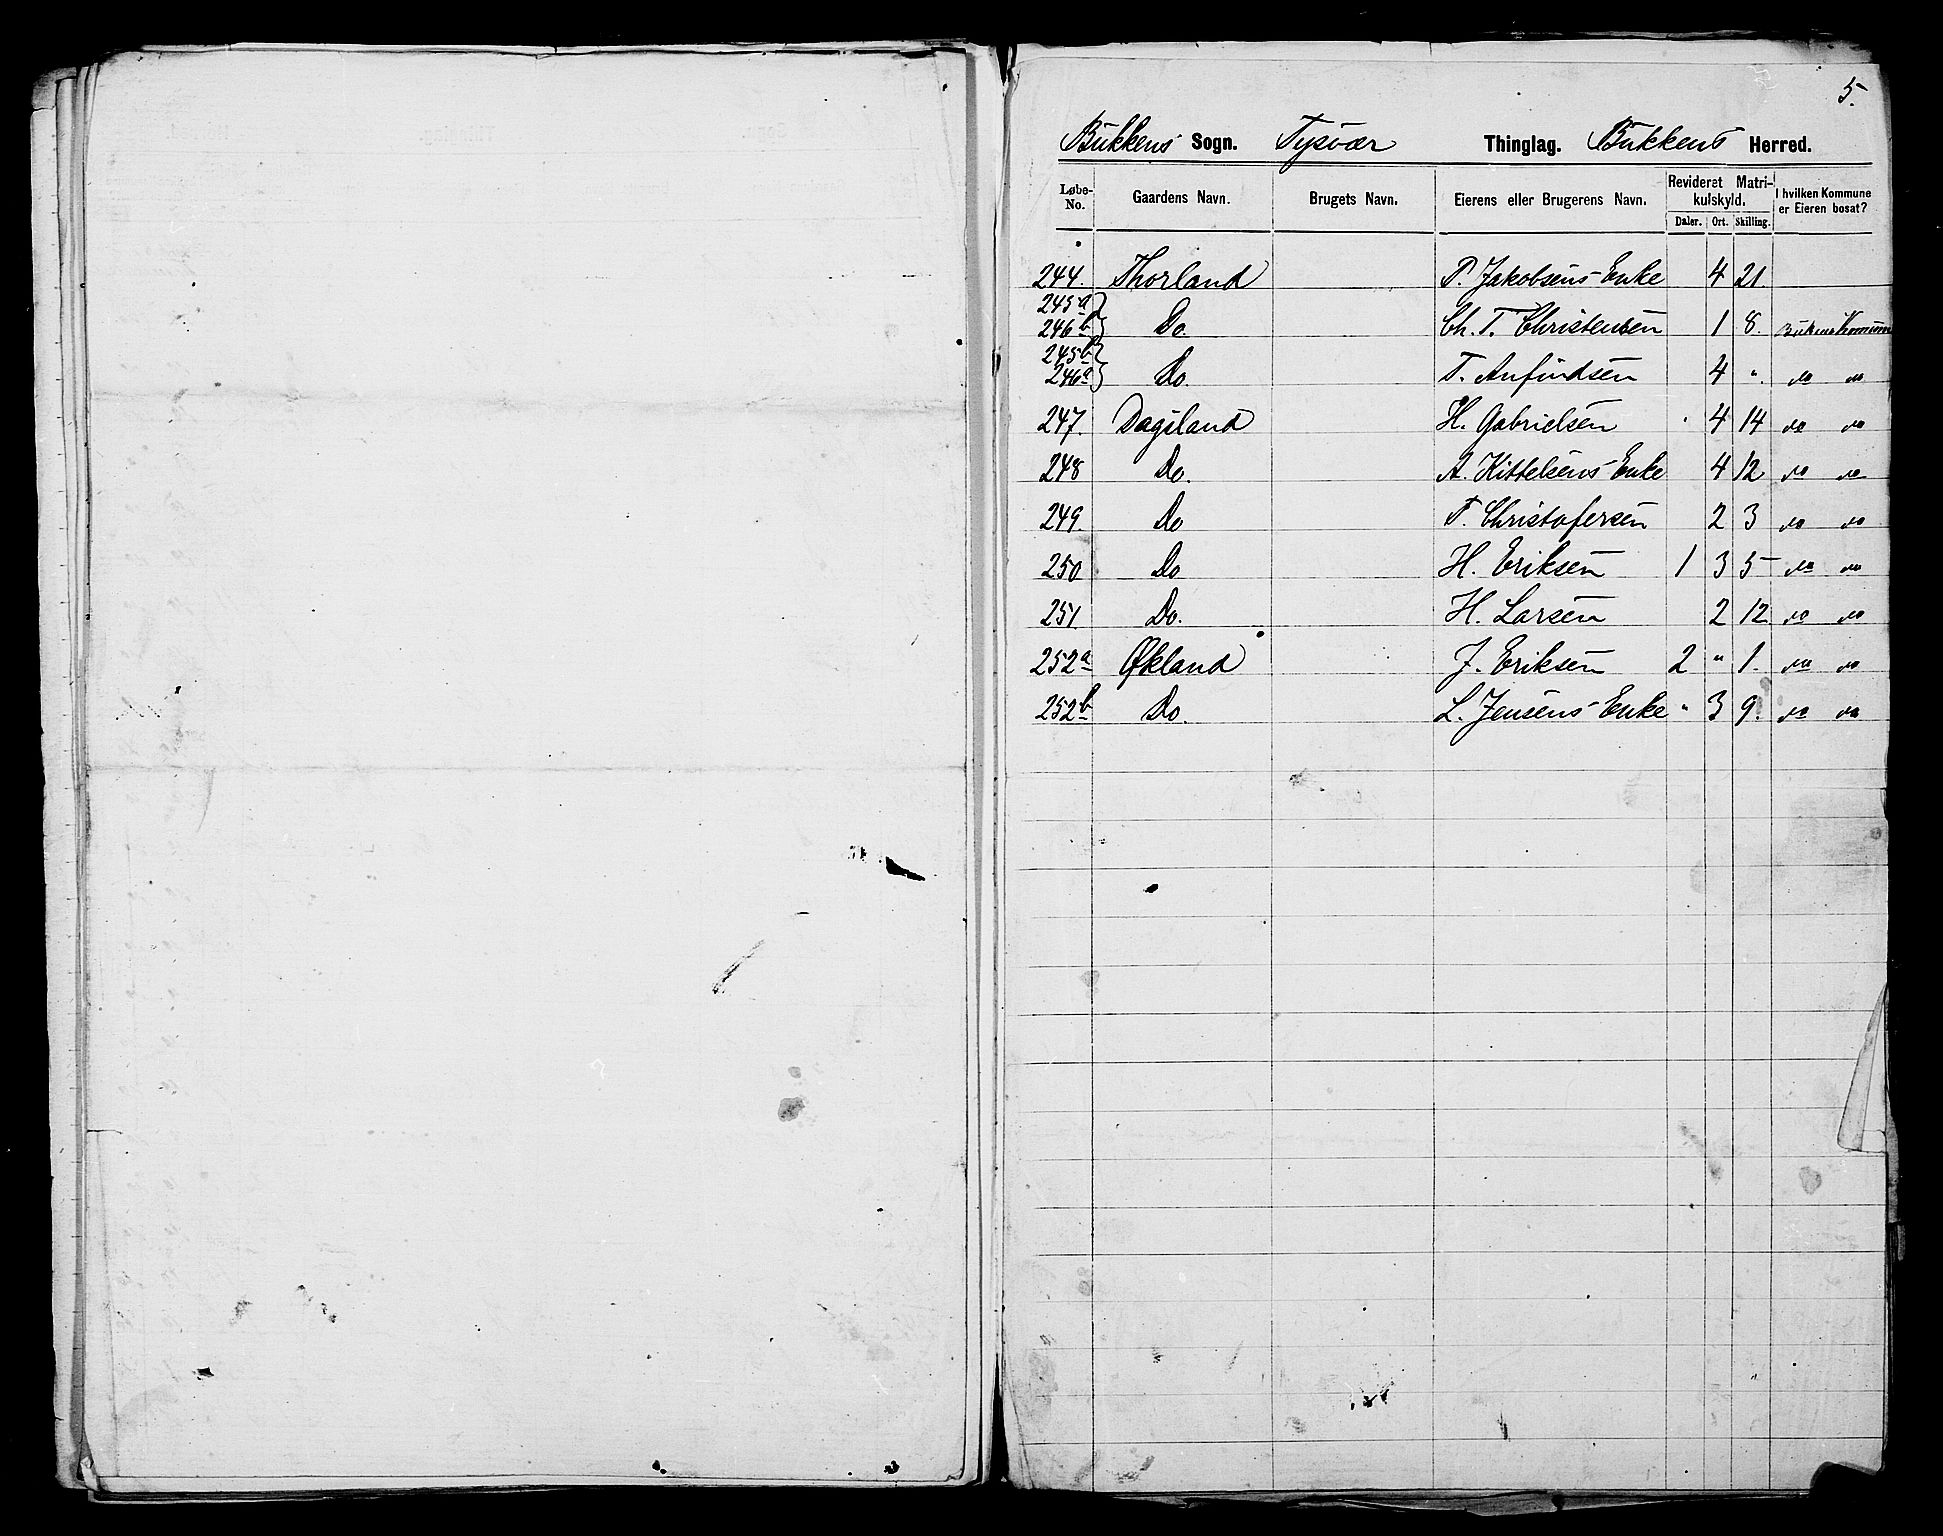 5.
Bukkens Sogn. Tysvær Thinglag. Bukkens Herred.
Løbe-No. Gaardens Navn. Brugets Navn. Eierens eller Brugerens Navn. Revideret Matrikulskyld. Daler. Ort. Skilling. I hvilken Kommune er Eieren bosat?
244. Thorland P. Jakobsens Enke 4 21.
245a 246b } Do. Ch. T. Christensen 1 8. Bukens Komune
245b 246a } Do. T. Anfindsen 4 ". do do
247. Dagsland H. Gabrielsen 4 14 do do
248 Do. A. Kittelsens Enke 4 12 do do
249. Do T. Christofersen 2 3 do do
250 Do H. Eriksen 1 3 5 do do
251. Do. H. Larsen 2 12 do do
252a Økland J. Eriksen 2 " 1. do do
252b Do. L. Jensens Enke " 3 9. do do